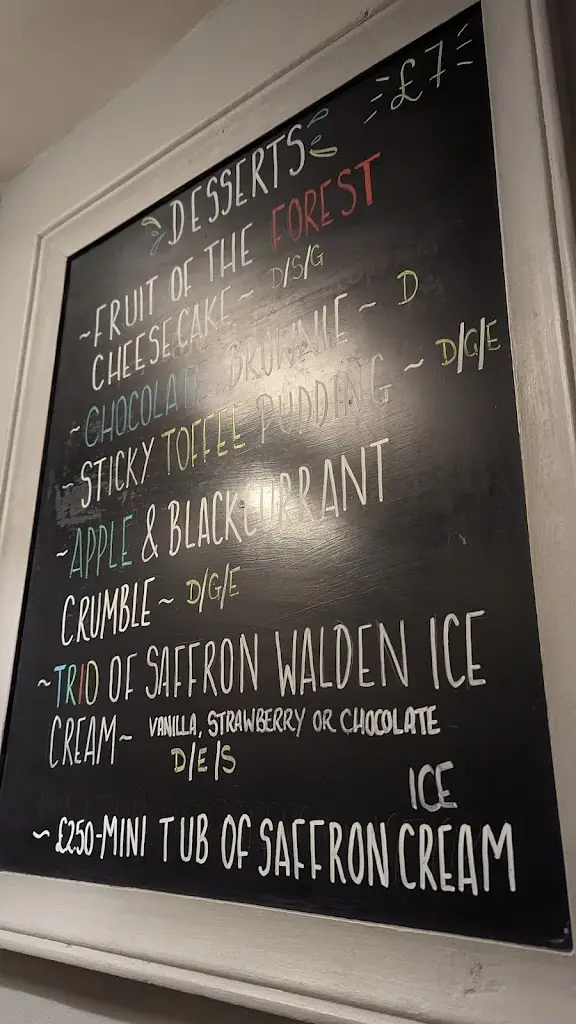 £7
DESSERTS
~FRUIT OF THE FOREST
CHEESECAKE~ D/S/G
~CHOCOLATE BROWNIE ~ D
~STICKY TOFFEE PUDDING ~ D/G/E
~APPLE & BLACKCURRANT
CRUMBLE~ D/G/E
~TRIO OF SAFFRON WALDEN ICE
CREAM~ VANILLA, STRAWBERRY OR CHOCOLATE
D/E/S
ICE
~£250-MINI TUB OF SAFFRON CREAM